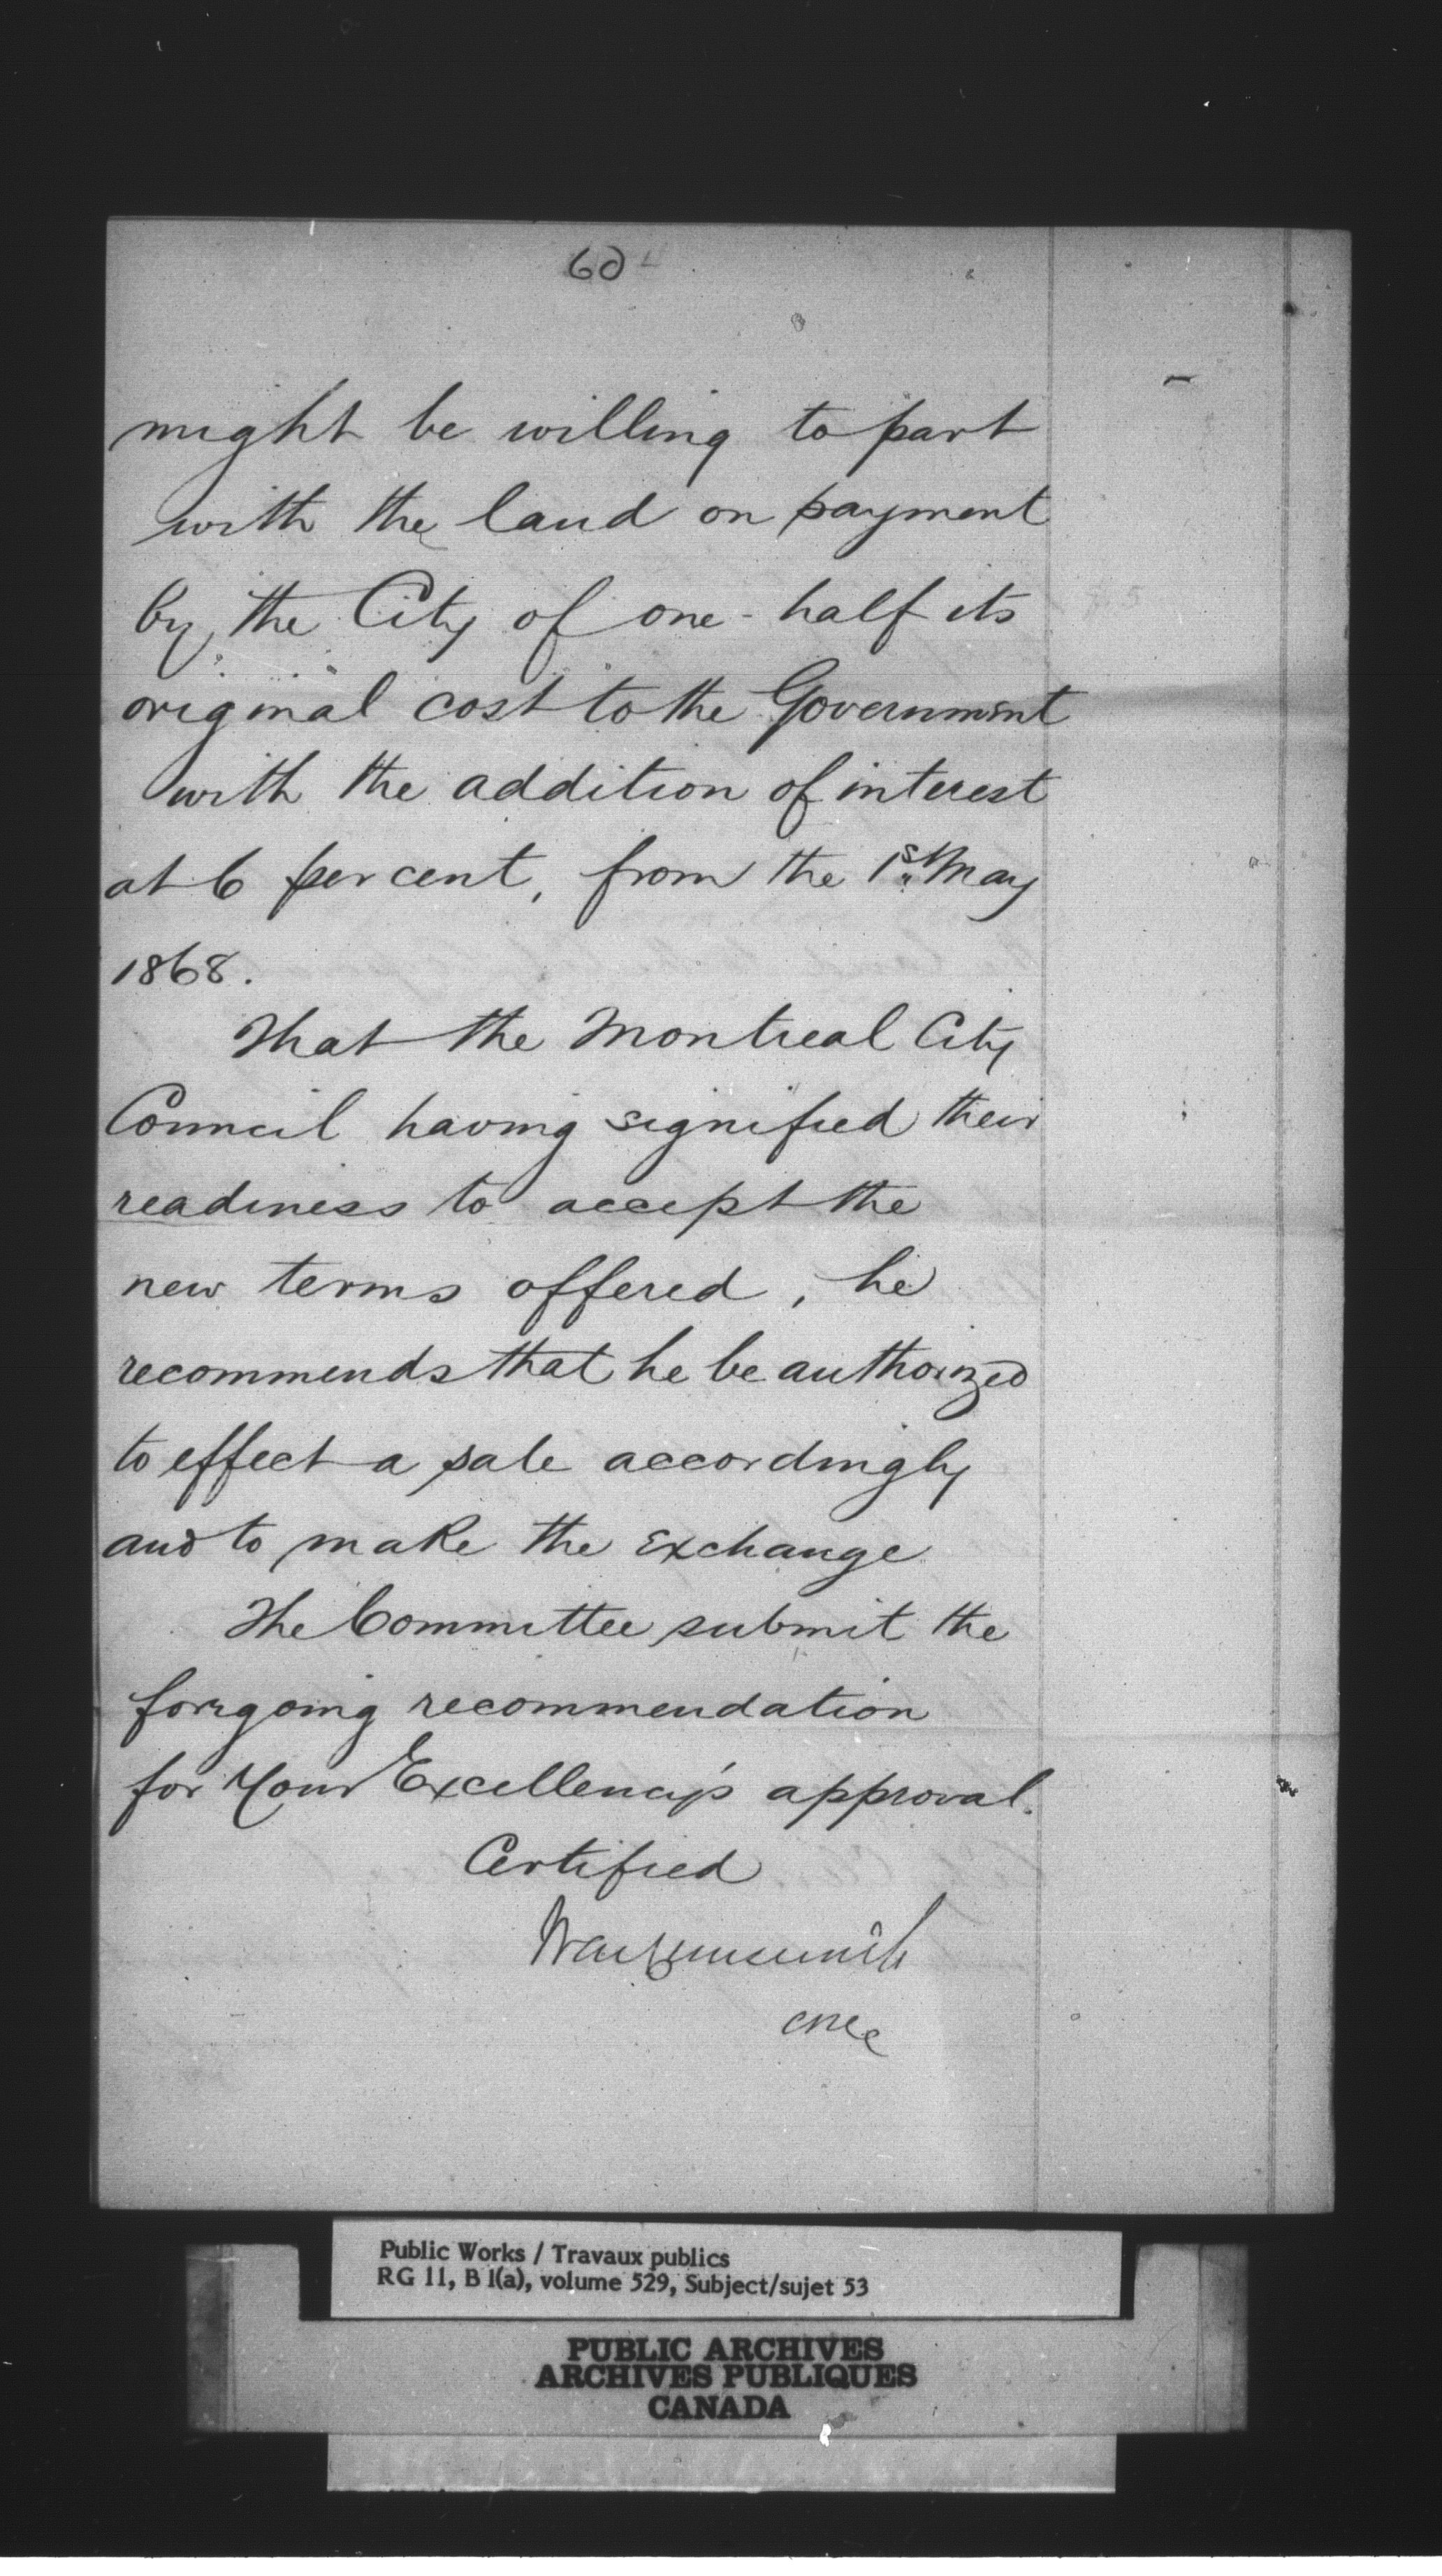 60
might be willing to part
with the land on payment
by the City of one-half its
original cost to the Government
with the addition of interest
at 6 per cent, from the 1st May
1868.
That the Montreal City
Council having signified their
readiness to accept the
new terms offered, he
recommends that he be authorized
to effect a sale accordingly
and to make the exchange
The Committee submit the
foregoing recommendation
for Your Excellency's approval.
Certified
Public Works / Travaux publics
RG 11, B 1(a), volume 529, Subject/sujet 53
PUBLIC ARCHIVES
ARCHIVES PUBLIQUES
CANADA